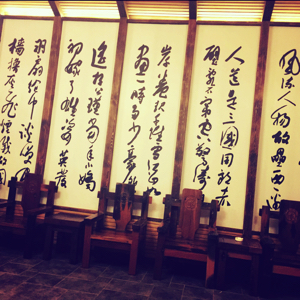 風流人物故壘西邊
人道是三國周郎赤
壁亂石穿空驚濤
岸卷起千堆雪江山如
畫一時多少豪傑
遙想公瑾當年小喬
初嫁了雄姿英發
羽扇綸巾談笑間
檣櫓灰飛煙滅故國